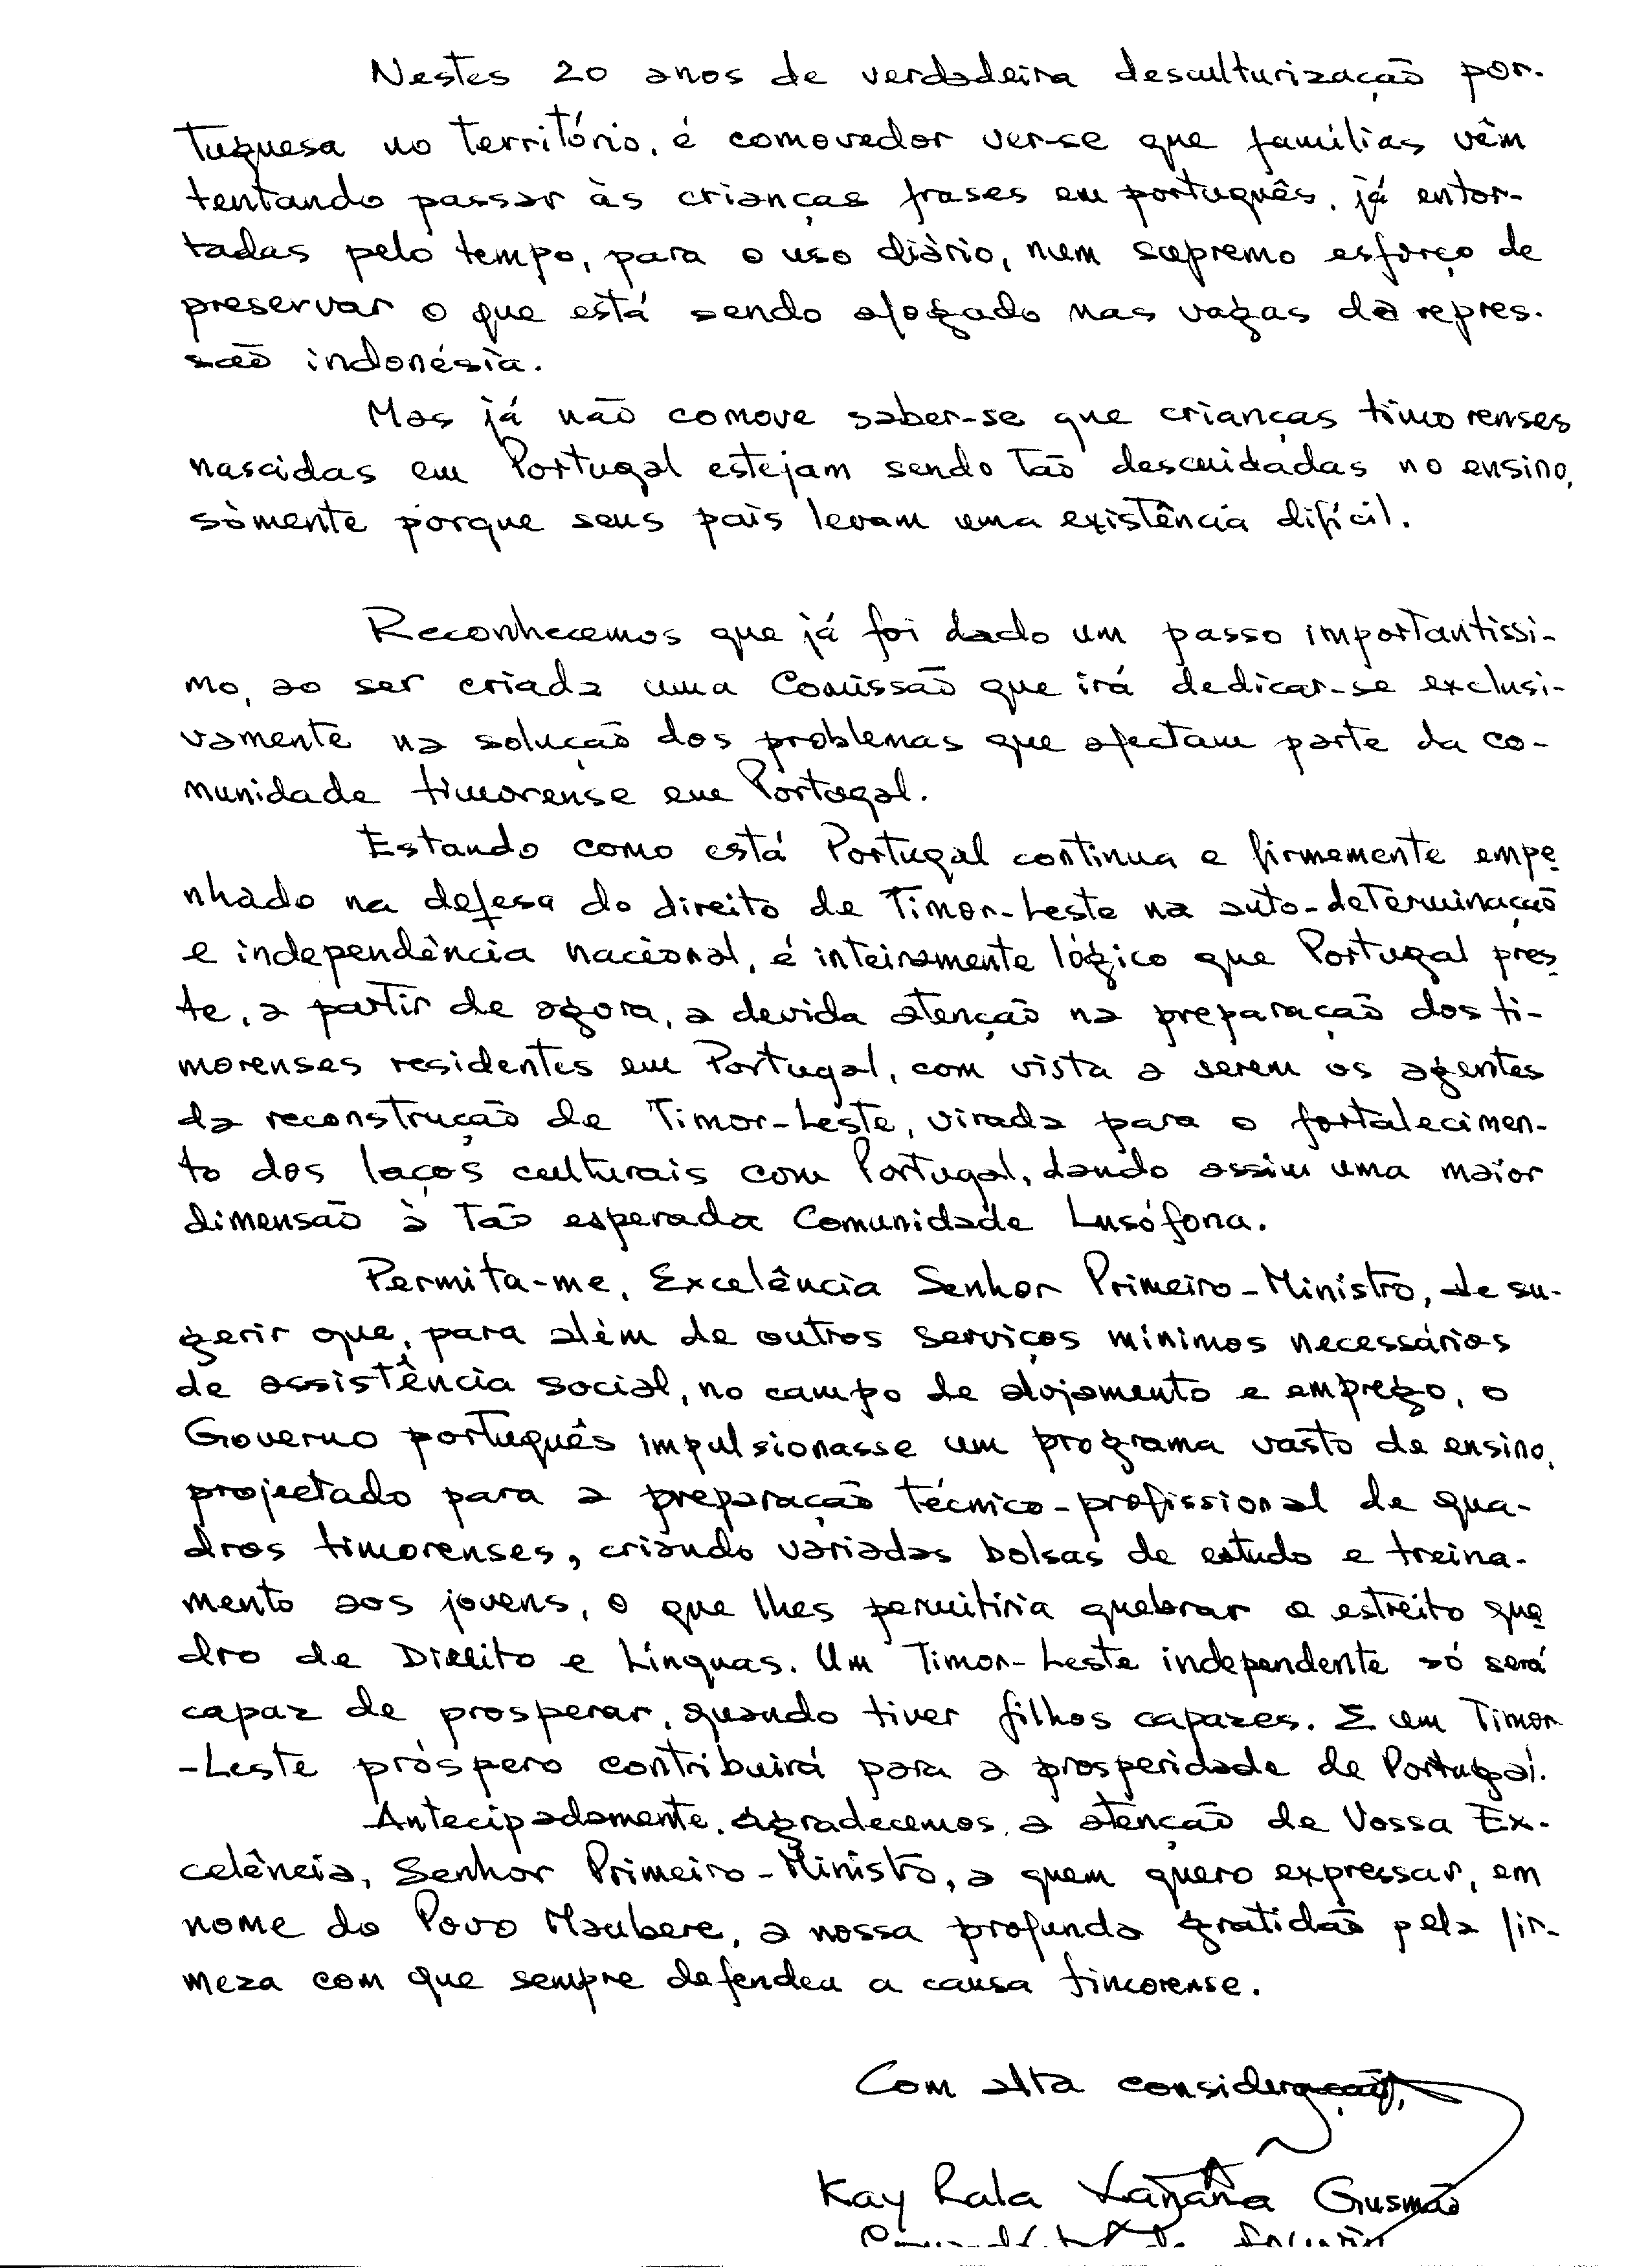 Nestes 20 anos de verdadeira desculturização por-
tuguesa no território, é comovedor ver-se que famílias vêm
tentando passar às crianças frases em português, já entor-
tadas pelo tempo, para o uso diário, num supremo esforço de
preservar o que está sendo afogado nas vagas da repres-
são indonésia.
Mas já não comove saber-se que crianças timorenses
nascidas em Portugal estejam sendo tão descuidadas no ensino,
sòmente porque seus pais levam uma existência difícil.
Reconhecemos que já foi dado um passo importantíssi-
mo, ao ser criada uma Comissão que irá dedicar-se exclusi-
vamente na solução dos problemas que afectam parte da co-
munidade timorense em Portugal.
Estando como está Portugal contínua e firmemente empe
nhado na defesa do direito de Timor-Leste na auto-determinação
e independência nacional, é inteiramente lógico que Portugal pres
te, a partir de agora, a devida atenção na preparação dos ti-
morenses residentes em Portugal, com vista a serem os agentes
da reconstrução de Timor-Leste, virada para o fortalecimen-
to dos laços culturais com Portugal, dando assim uma maior
dimensão à tão esperada Comunidade Lusófona.
Permita-me, Excelência Senhor Primeiro-Ministro, de su-
gerir que, para além de outros serviços mínimos necessários
de assistência social, no campo de alojamento e emprego, o
Governo português impulsionasse um programa vasto de ensino,
projectado para a preparação técnico-profissional de qua-
dros timorenses, criando variadas bolsas de estudo e treina-
mento aos jovens, o que lhes permitiria quebrar o estreito qua
dro de Direito e Línguas. Um Timor-Leste independente só será
capaz de prosperar, quando tiver filhos capazes. E um Timor
-Leste próspero contribuirá para a prosperidade de Portugal.
Antecipadamente, agradecemos, a atenção de Vossa Ex-
celência, Senhor Primeiro-Ministro, a quem quero expressar, em
nome do Povo Maubere, a nossa profunda gratidão pela fir-
meza com que sempre defendeu a causa timorense.
Com alta consideração,
Kay Rala Xanana Gusmão